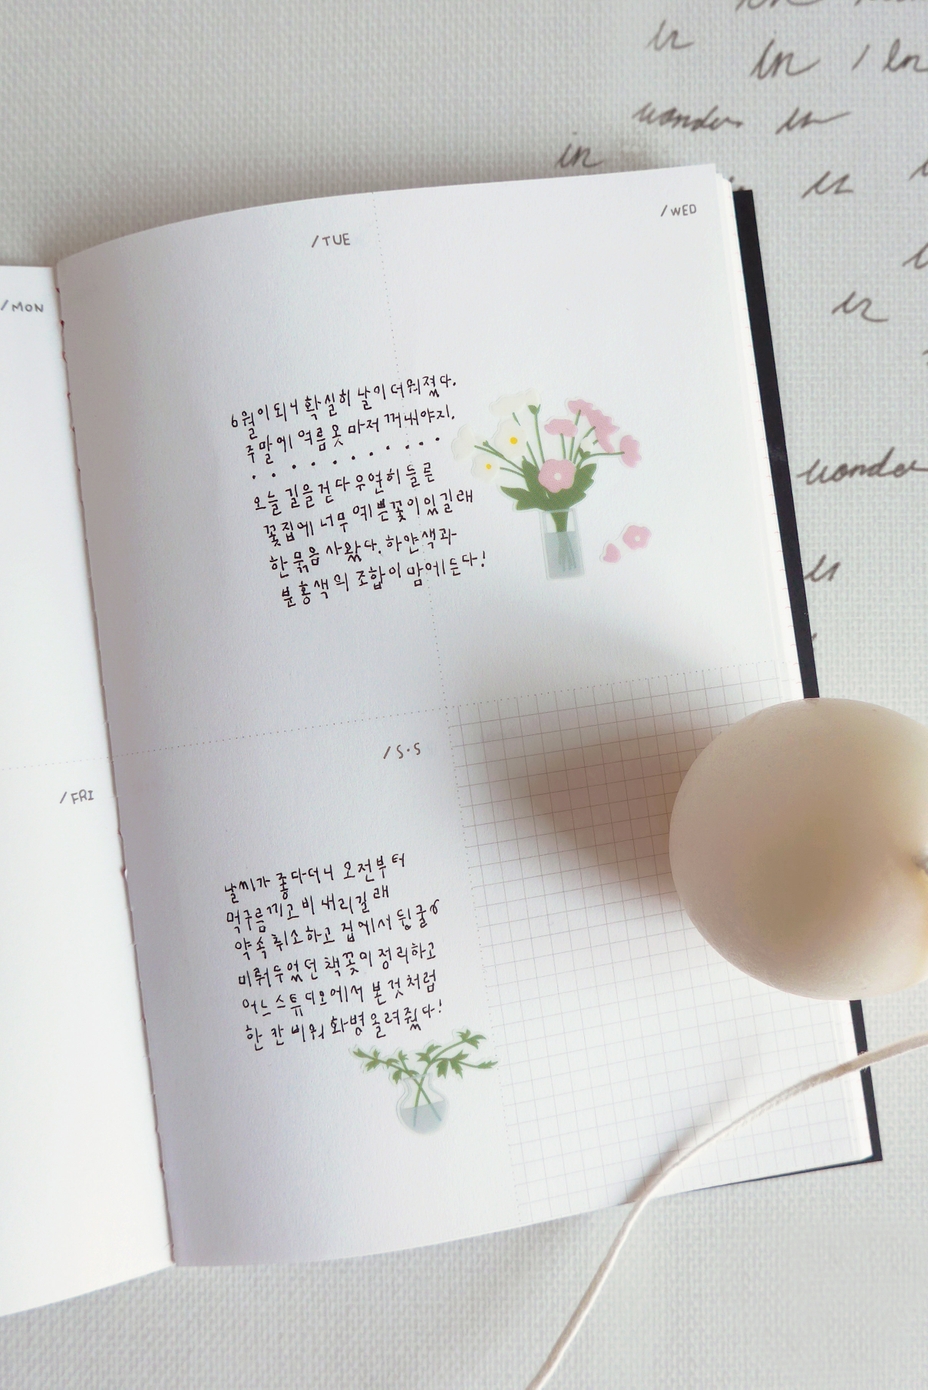 /MON
/TUE
/WED
6월이 되니 확실히 날이 더워졌다.
주말에 여름 옷 마저 꺼내야지.
오늘 길을 걷다 우연히 들른
꽃집에 너무 예쁜 꽃이 있길래
한 묶음 사왔다. 하얀색과
분홍색의 조합이 맘에 든다!
/FRI
/S·S
날씨가 좋다더니 오전부터
먹구름 끼고 비 내리길래
약속 취소하고 집에서 뒹굴
미뤄두었던 책꽂이 정리하고
어느 스튜디오에서 본 것처럼
한 칸 비워 화병 올려줬다!
in
in / in
wonder in
in
in
in
wonder
in